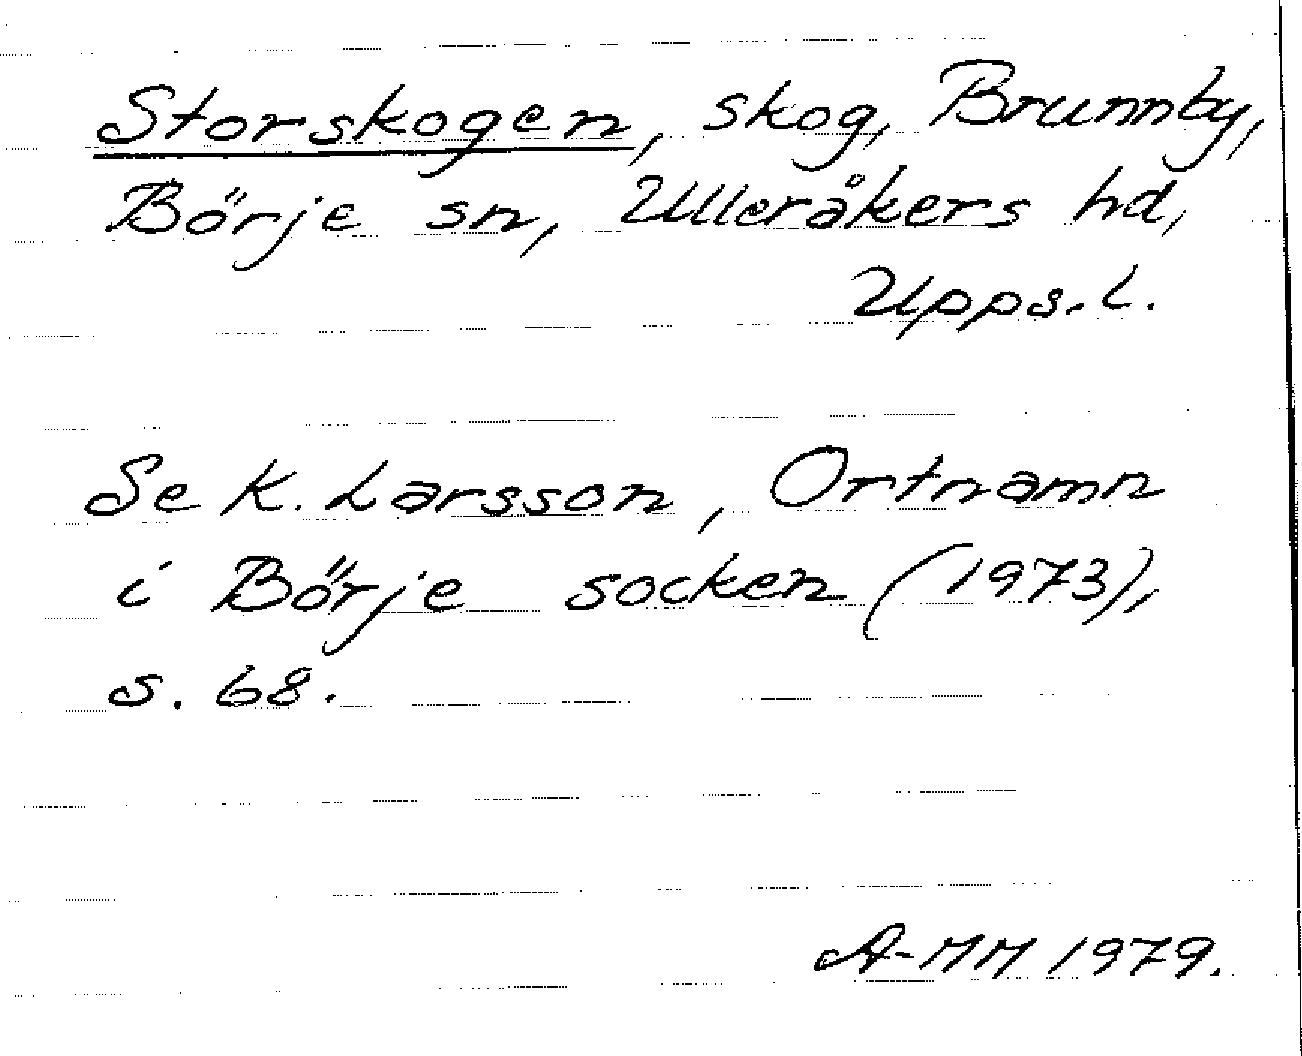 Storskogen, skog, Brunnby,
Börje sn, Ulleråkers hd,
Upps. l.
Se K. Larsson, Ortnamn
i Börje socken (1973),
s. 68.
A-MM 1979.